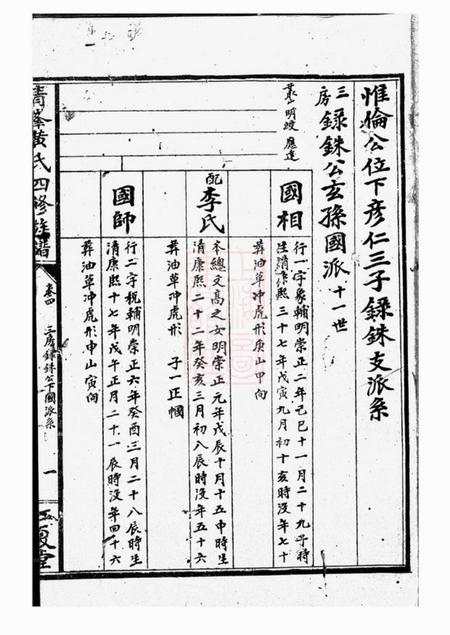 惟倫公位下彥仁三子錄銖支派系
三房錄銖公玄孫國派十一世
國相
行一字象輔明崇正二年己巳十一月二十九子時
生清康熙三十七年戊寅九月初十亥時没年七十
葬油草冲虎形庚山甲向
配李氏
本總文高之女明崇正元年戊辰十月十五申時生
清康熙二十二年癸亥三月初八辰時没年五十六
葬油草冲虎形 子一正楓
國師
行二字稅輔明崇正六年癸酉三月二十八辰時生
清康熙十七年戊午正月二十一辰時没年四十六
葬油草冲虎形申山寅向
黃氏四修族譜
卷四
三房錄銖公下國派系
一
江夏堂